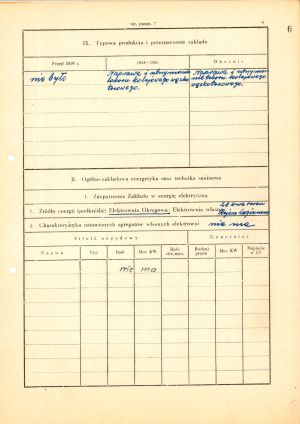 6
IX. Typowa produkcja i przeznaczenie zakładu
Przed 1939 r.
Obecnie
nie było
Naprawa i utrzymanie
taboru kolejowego wąsko
torowego.
Naprawa i utrzyma
nie taboru kolejowego
wąskotorowego.
B. Ogólno-zakładowa energetyka oraz technika sanitarna
1. Zaopatrzenie Zakładu w energię elektryczną
1. Źródło energii (podkreślić) Elektrownia Okręgowa; Elektrownia własna
2. Charakterystyka ustawionych agregatów własnej elektrowni
nie ma
Silnik napędowy
Generator
Nazwa
Typ
Ilość
Moc KM
Ilość
obr./min.
Rodzaj
prądu
Moc KW
Napięcie
w kV
nie ma